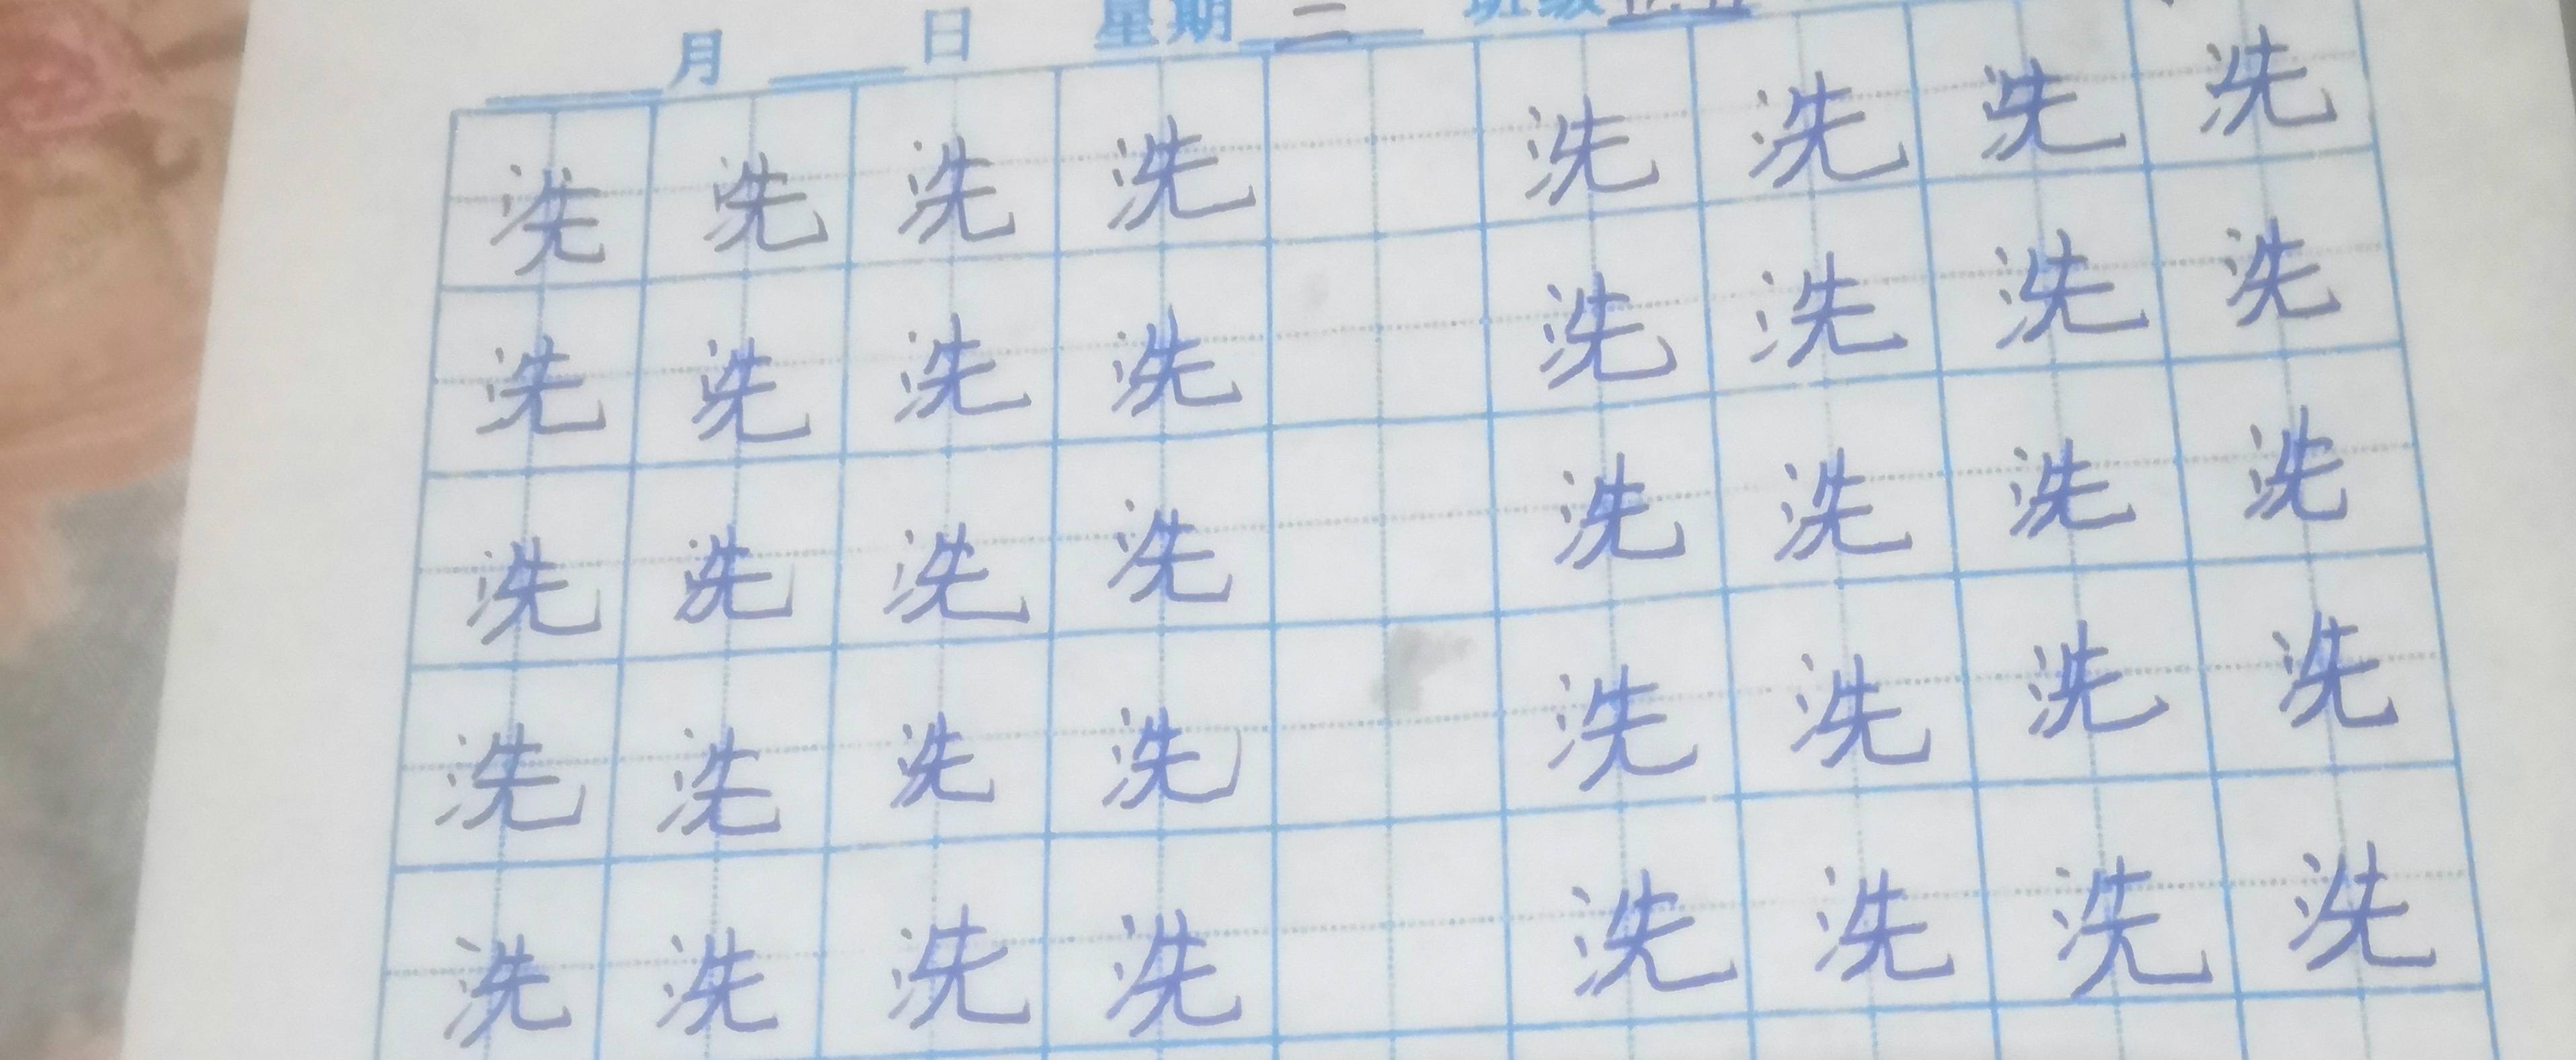 月 日 星期 二 班级
洗 洗 洗 洗 洗 洗 洗 洗
洗 洗 洗 洗 洗 洗 洗 洗
洗 洗 洗 洗 洗 洗 洗 洗
洗 洗 洗 洗 洗 洗 洗 洗
洗 洗 洗 洗 洗 洗 洗 洗